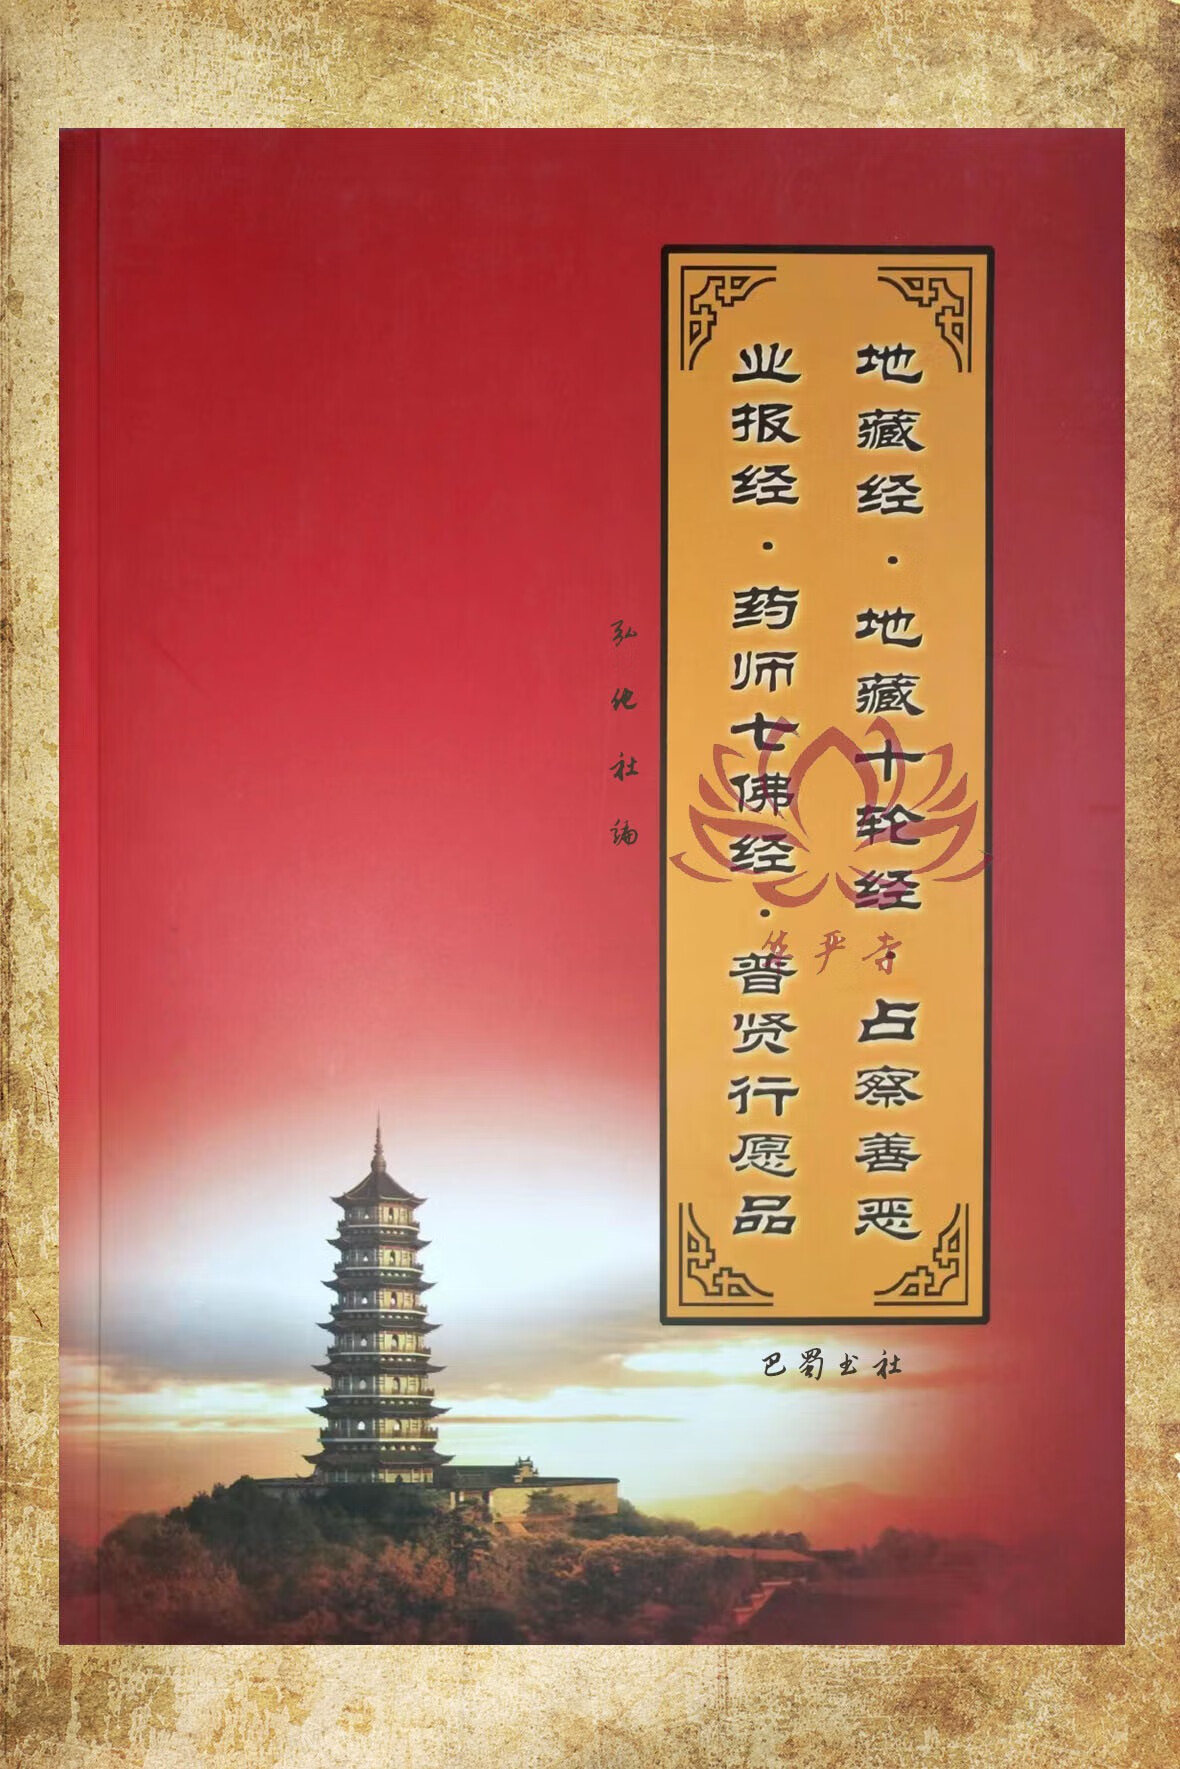 地藏经·地藏十轮经·占察善恶
业报经·药师七佛经·普贤行愿品
弘化社编
华严寺
巴蜀书社